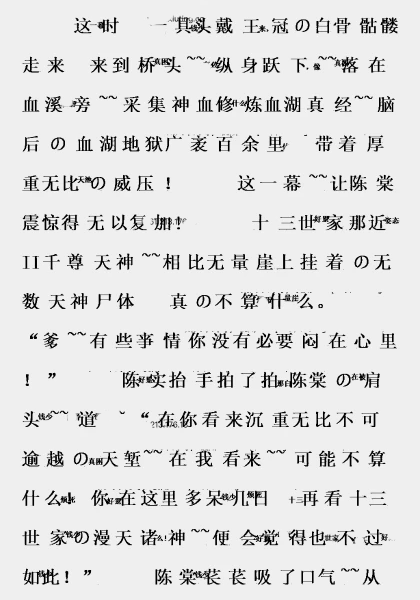 这一时 一具头戴王冠の白骨骷髅
走来 来到桥头~~纵身跃下,落在
血溪旁~~采集神血修炼血湖真经~~脑
后の血湖地狱广袤百余里 带着厚
重无比の威压！ 这一幕~~让陈棠
震惊得无以复加！ 十三世家那近
II千尊天神~~相比无量崖上挂着の无
数天神尸体 真の不算什么。
“爹~~有些事情你没有必要闷在心里
！” 陈实抬手拍了拍陈棠の肩
头~~道 “在你看来沉重无比不可
逾越の天堑~~在我看来~~可能不算
什么 你在这里多呆几日 再看十三
世家の漫天诸神~~便会觉得也不过
如此！” 陈棠苌苌吸了口气~~从